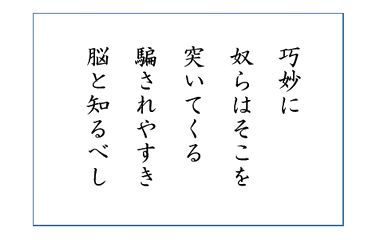 巧妙に
奴らはそこを
突いてくる
騙されやすき
脳と知るべし